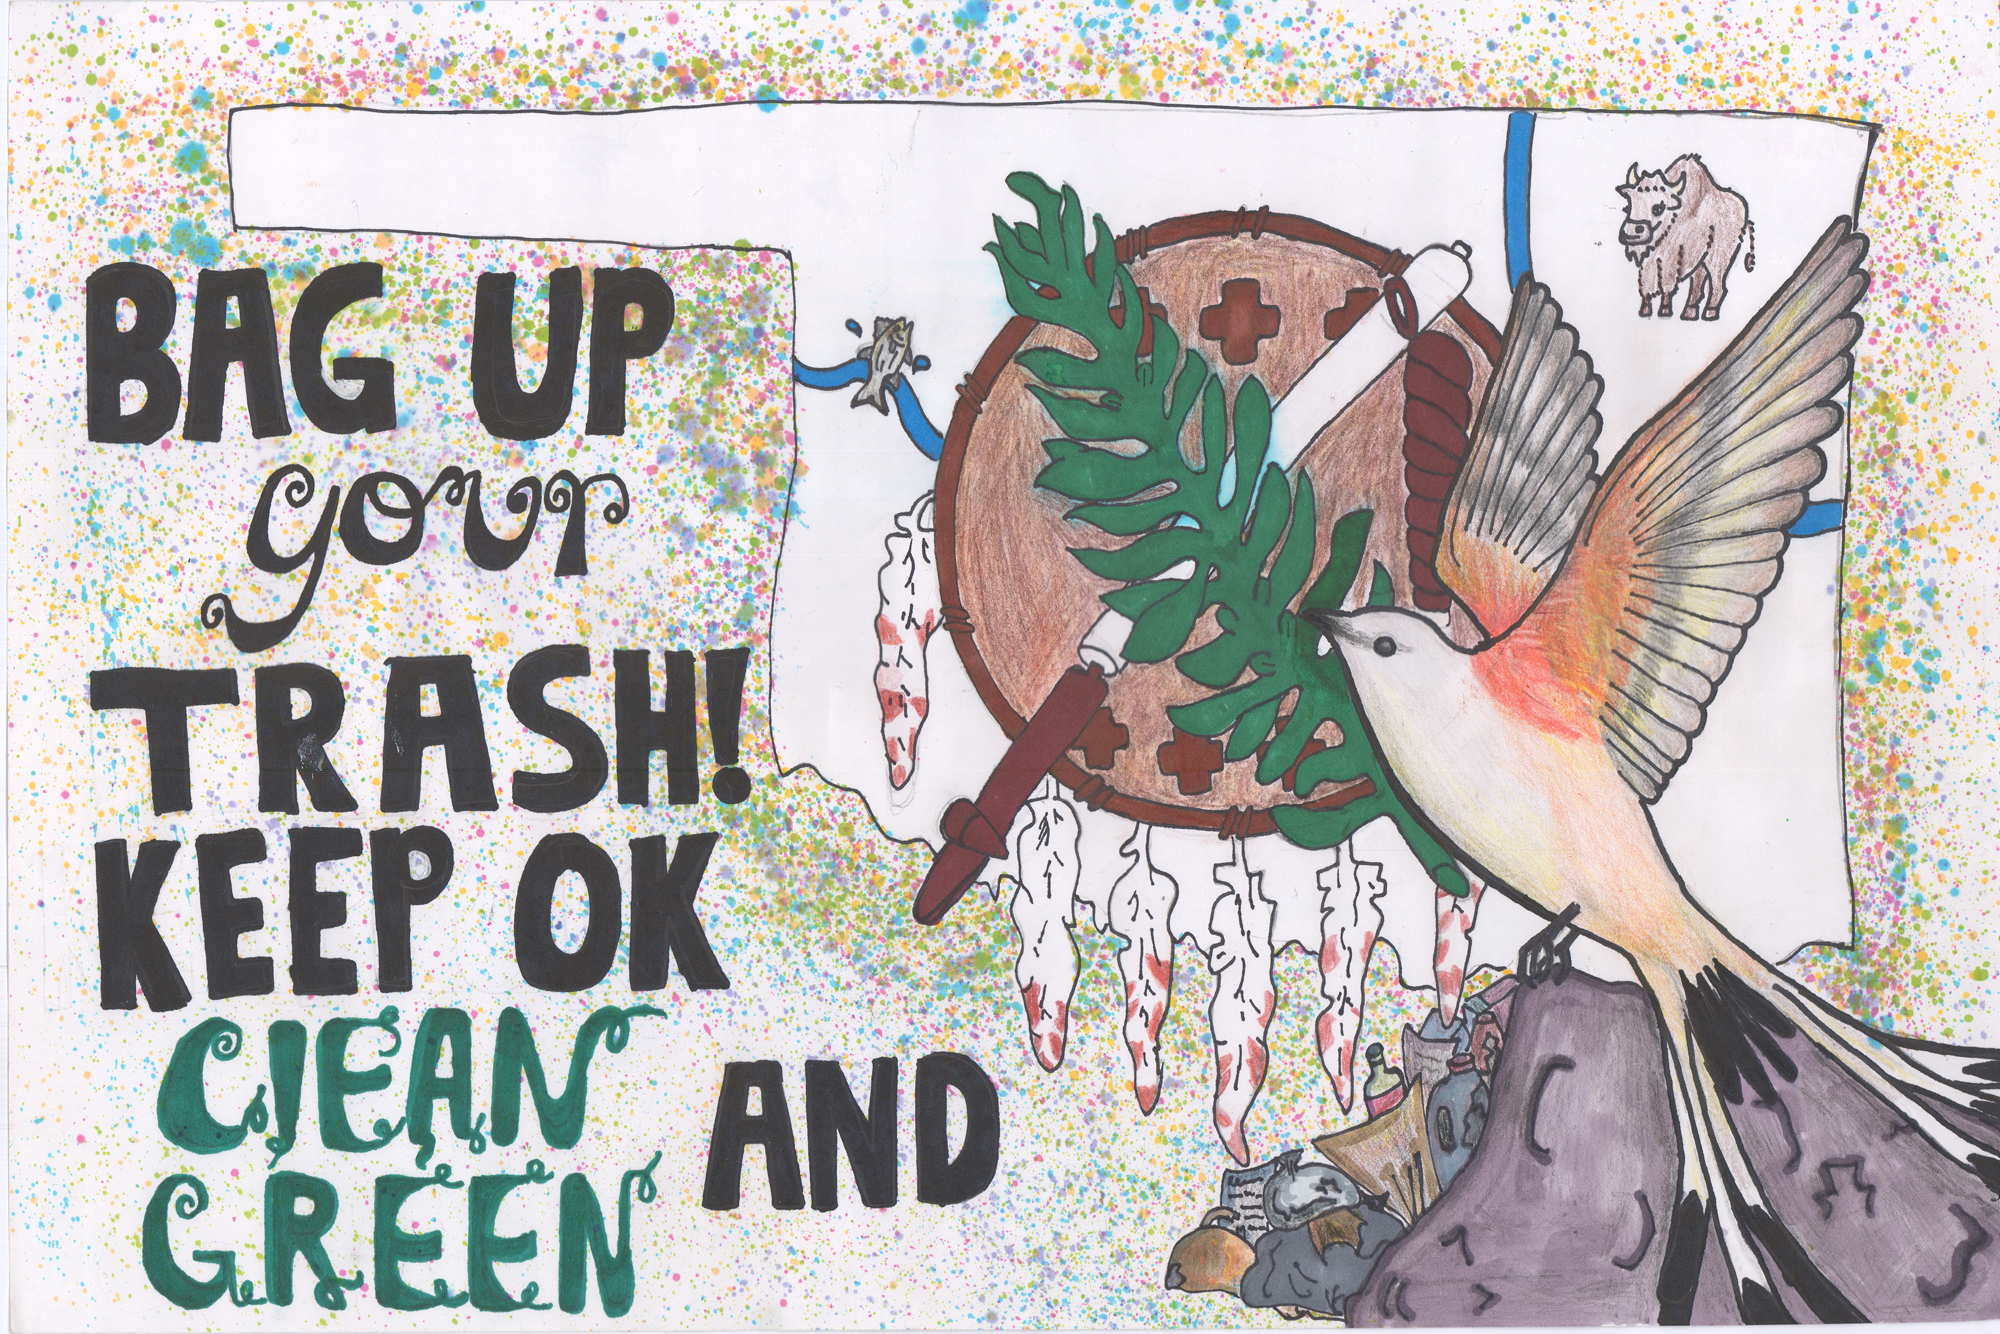 BAG UP
your
TRASH!
KEEP OK
CLEAN
AND
GREEN